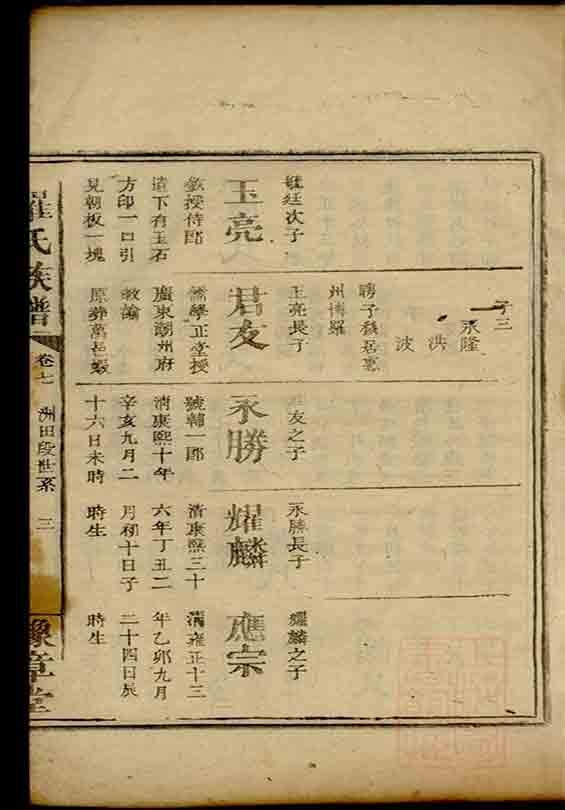 廷次子
玉亮
欽授侍郎
遺下有玉石
方印一口引
見朝板一塊
子三
永隆
洪
波
聘子移居惠
州博羅
玉亮長子
君友
儒學正堂授
廣東潮州府
教諭
原葬萬邑蝦
君友之子
永勝
號輔一郎
清康熙十年
辛亥九月二
十六日未時
永勝長子
耀麟
清康熙三十
六年丁丑二
月初十日子
時生
耀麟之子
應宗
清雍正十三
年乙卯九月
二十四日辰
時生
羅氏族譜
卷七
洲田段世系
三
豫章堂